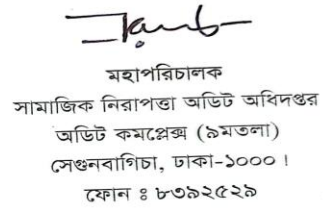 মহাপরিচালক
সামাজিক নিরাপত্তা অডিট অধিদপ্তর
অডিট কমপ্লেক্স (৯মতলা)
সেগুনবাগিচা, ঢাকা-১০০০।
ফোন ঃ ৮৩৯২৫২৯